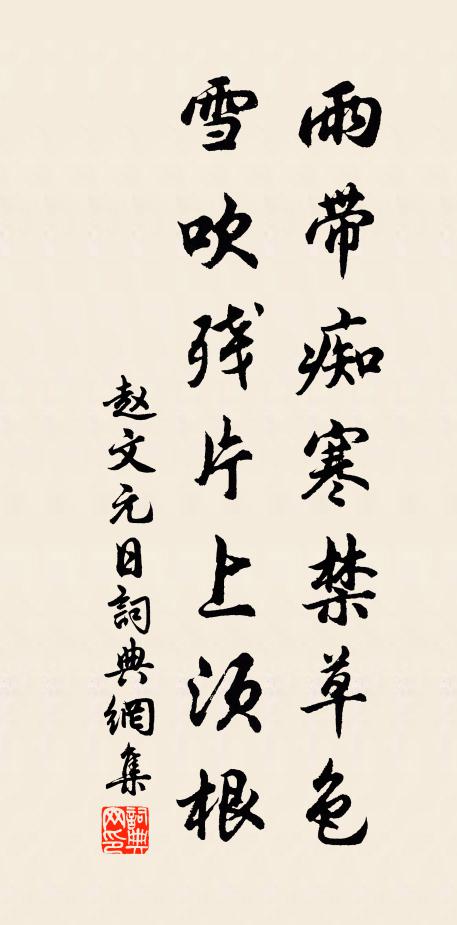 雨带痴寒禁草色
雪吹残片上须根
赵文元日詞典網集
詞典
网印